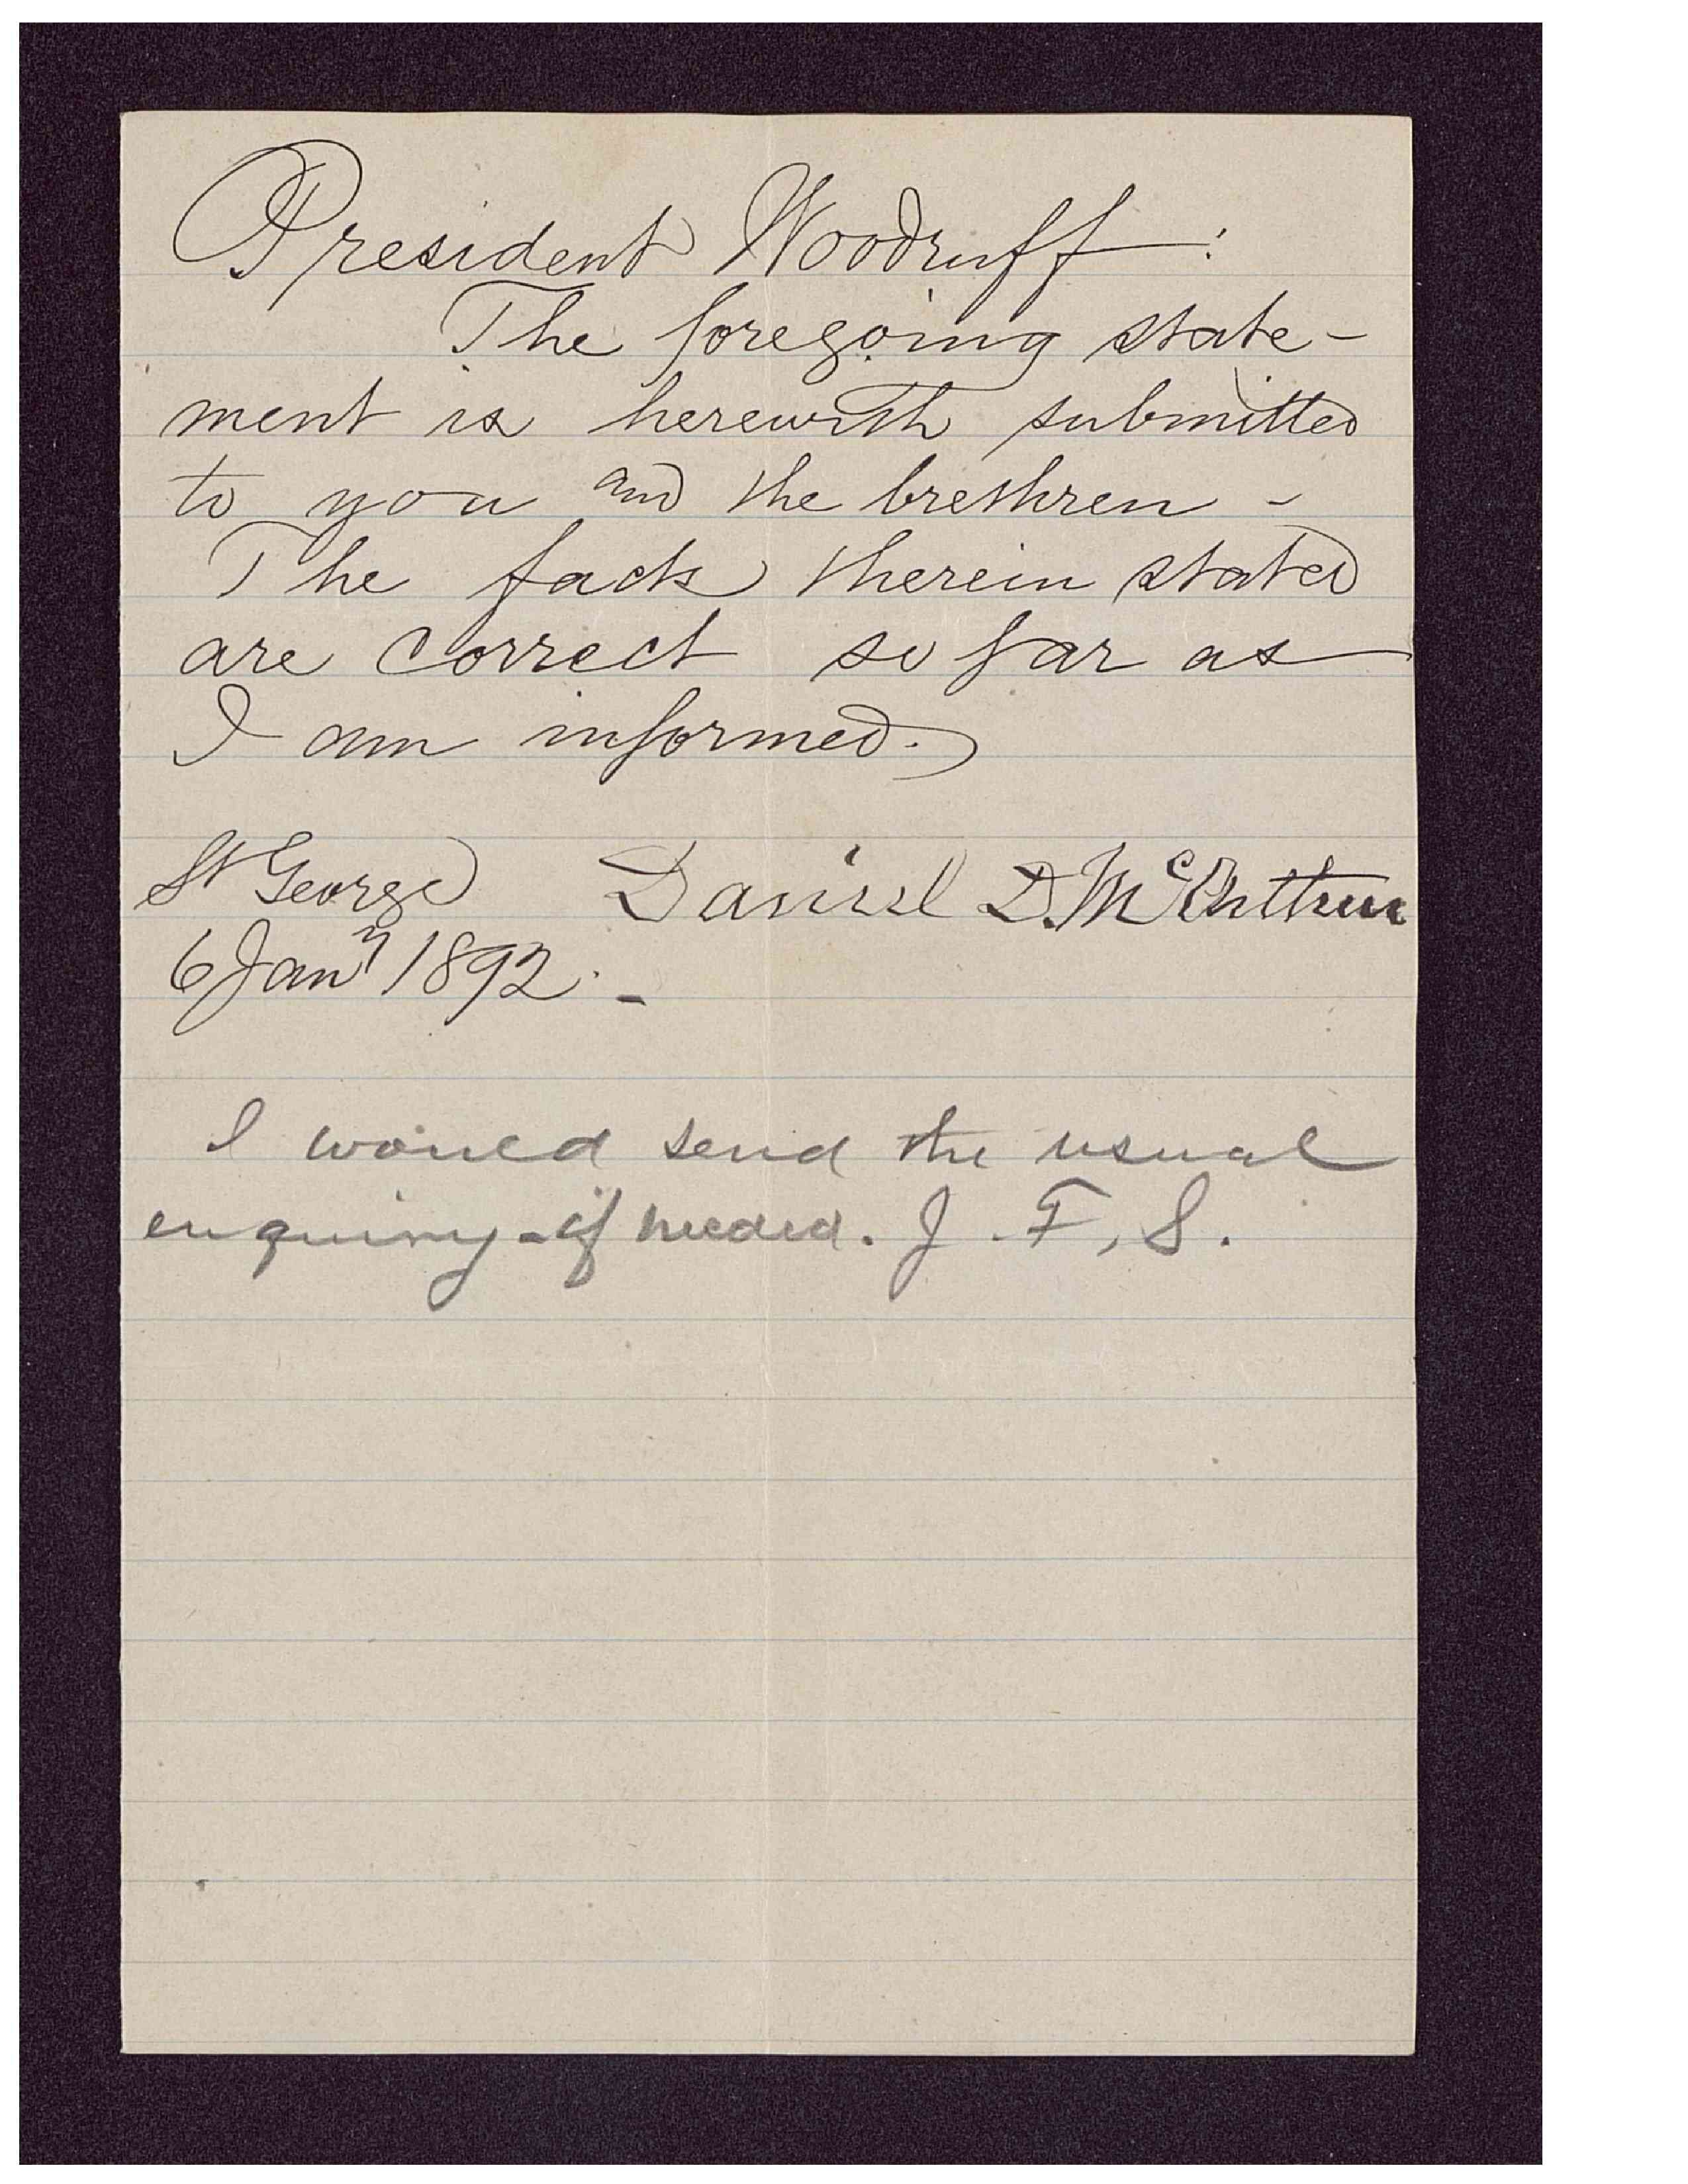 President Woodruff:
The foregoing state-
ment is herewith submitted
to you and the brethren -
The facts therein stated
are correct so far as
I am informed.
St George Daniel D. McArthur
6 Jany 1892. -
I would send the usual
enquiry - if needed. J. F. S.